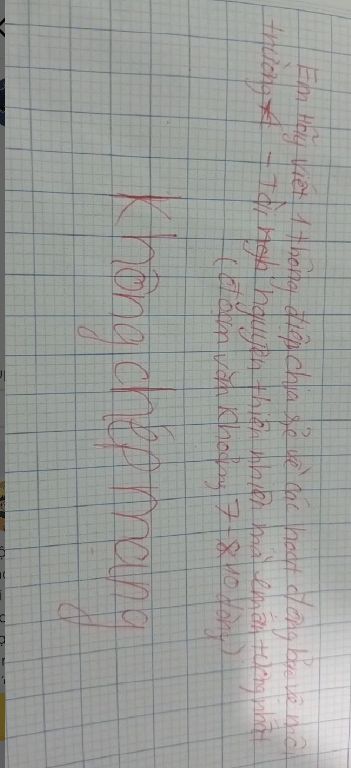 Em hãy viết 1 thông điệp chia sẻ về các hoạt động bảo vệ môi
trường - Tài nguyên thiên nhiên mà em ấn tượng nhất
(đoạn văn khoảng 7-8 10 dòng)
Không chép mạng